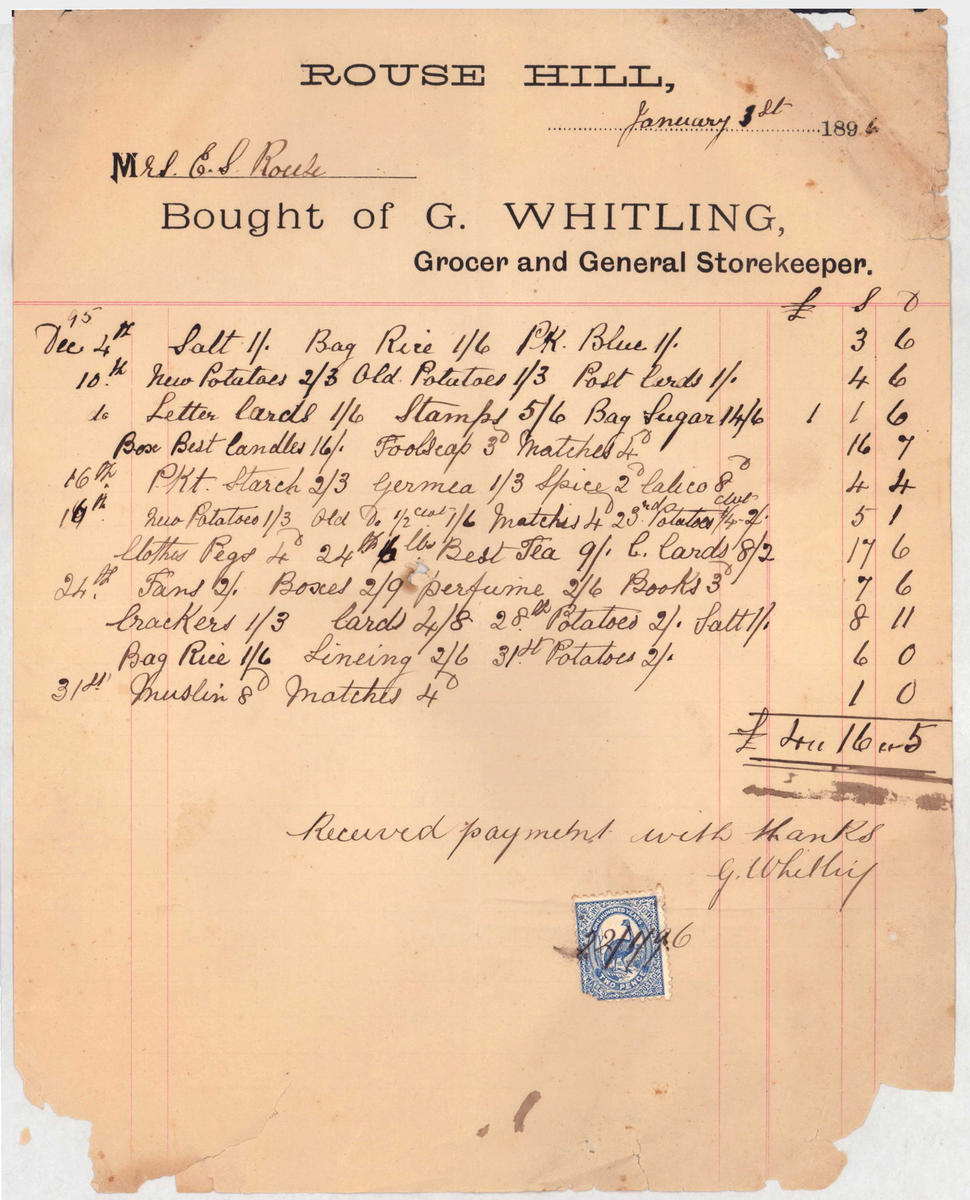 ROUSE HILL,
January 1st 1896
Mrs. E. S. Rouse
Bought of G. WHITLING,
Grocer and General Storekeeper.
£ S D
95
Dec 4th Salt 1/. Bag Rice 1/6 PK. Blue 1/. 3 6
10th New Potatoes 2/3 Old Potatoes 1/3 Post Cards 1/. 4 6
Letter Cards 1/6 Stamps 5/6 Bag Sugar 14/6 1 1 6
Box Best Candles 16/. Foolscap 3D Matches 4D 16 7
16th PKt. Starch 2/3 Germea 1/3 Spice 2D Calico 8D 4 4
New Potatoes 1/3 Old Do. 1/2 cwt 1/6 Matches 4D 23rd Potatoes 1/4 cwt 2/. 5 1
Clothes Pegs 4D 24th 6 lbs Best Tea 9/. C. Cards 8/2 17 6
24th Fans 2/. Boxes 2/9 perfume 2/6 Books 3D 7 6
Crackers 1/3 Cards 4/8 28th Potatoes 2/. Salt 1/. 8 11
Bag Rice 1/6 Lineing 2/6 31st Potatoes 2/. 6 0
31st Muslin 8D Matches 4D 1 0
£ 4 " 16 " 5
Received payment with thanks
G. Whitling
ONE HUNDRED YEARS
22/1/96
TWO PENCE